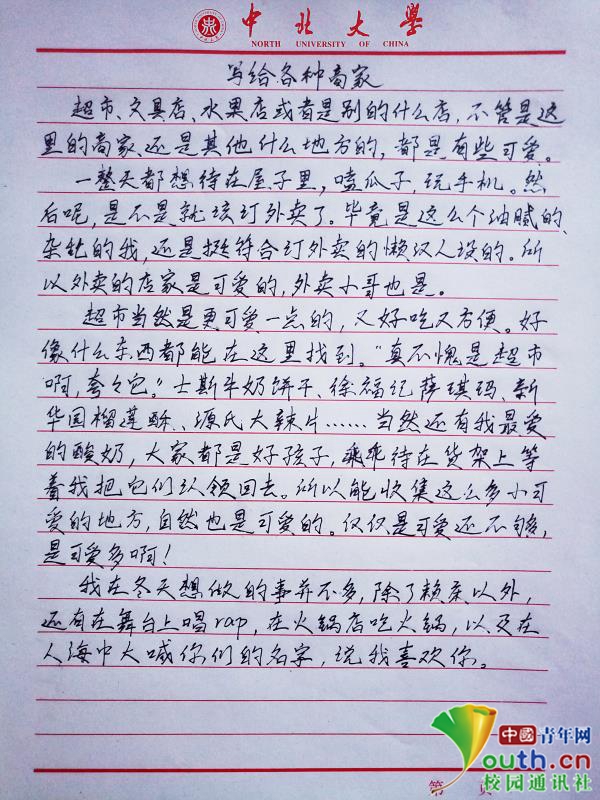 中北大學
NORTH UNIVERSITY OF CHINA
写给各种商家
超市、文具店、水果店或者是别的什么店，不管是这
里的商家还是其他什么地方的，都是有些可爱。
一整天都想待在屋子里，嗑瓜子，玩手机。然
后呢，是不是就该订外卖了。毕竟是这么个油腻的、
杂乱的我，还是挺符合订外卖的懒汉人设的。所
以外卖的店家是可爱的，外卖小哥也是。
超市当然是更可爱一点的，又好吃又方便。好
像什么东西都能在这里找到。“真不愧是超市
啊，夸夸它。”士斯牛奶饼干、徐福记萨琪玛、新
华园榴莲酥、源氏大辣片……当然还有我最爱
的酸奶，大家都是好孩子，乖乖待在货架上等
着我把它们认领回去。所以能收集这么多小可
爱的地方，自然也是可爱的。仅仅是可爱还不够，
是可爱多啊！
我在冬天想做的事并不多，除了赖床以外，
还有在舞台上唱rap，在火锅店吃火锅，以及在
人海中大喊你们的名字，说我喜欢你。
第 页
中國青年网
youth.cn
校园通讯社